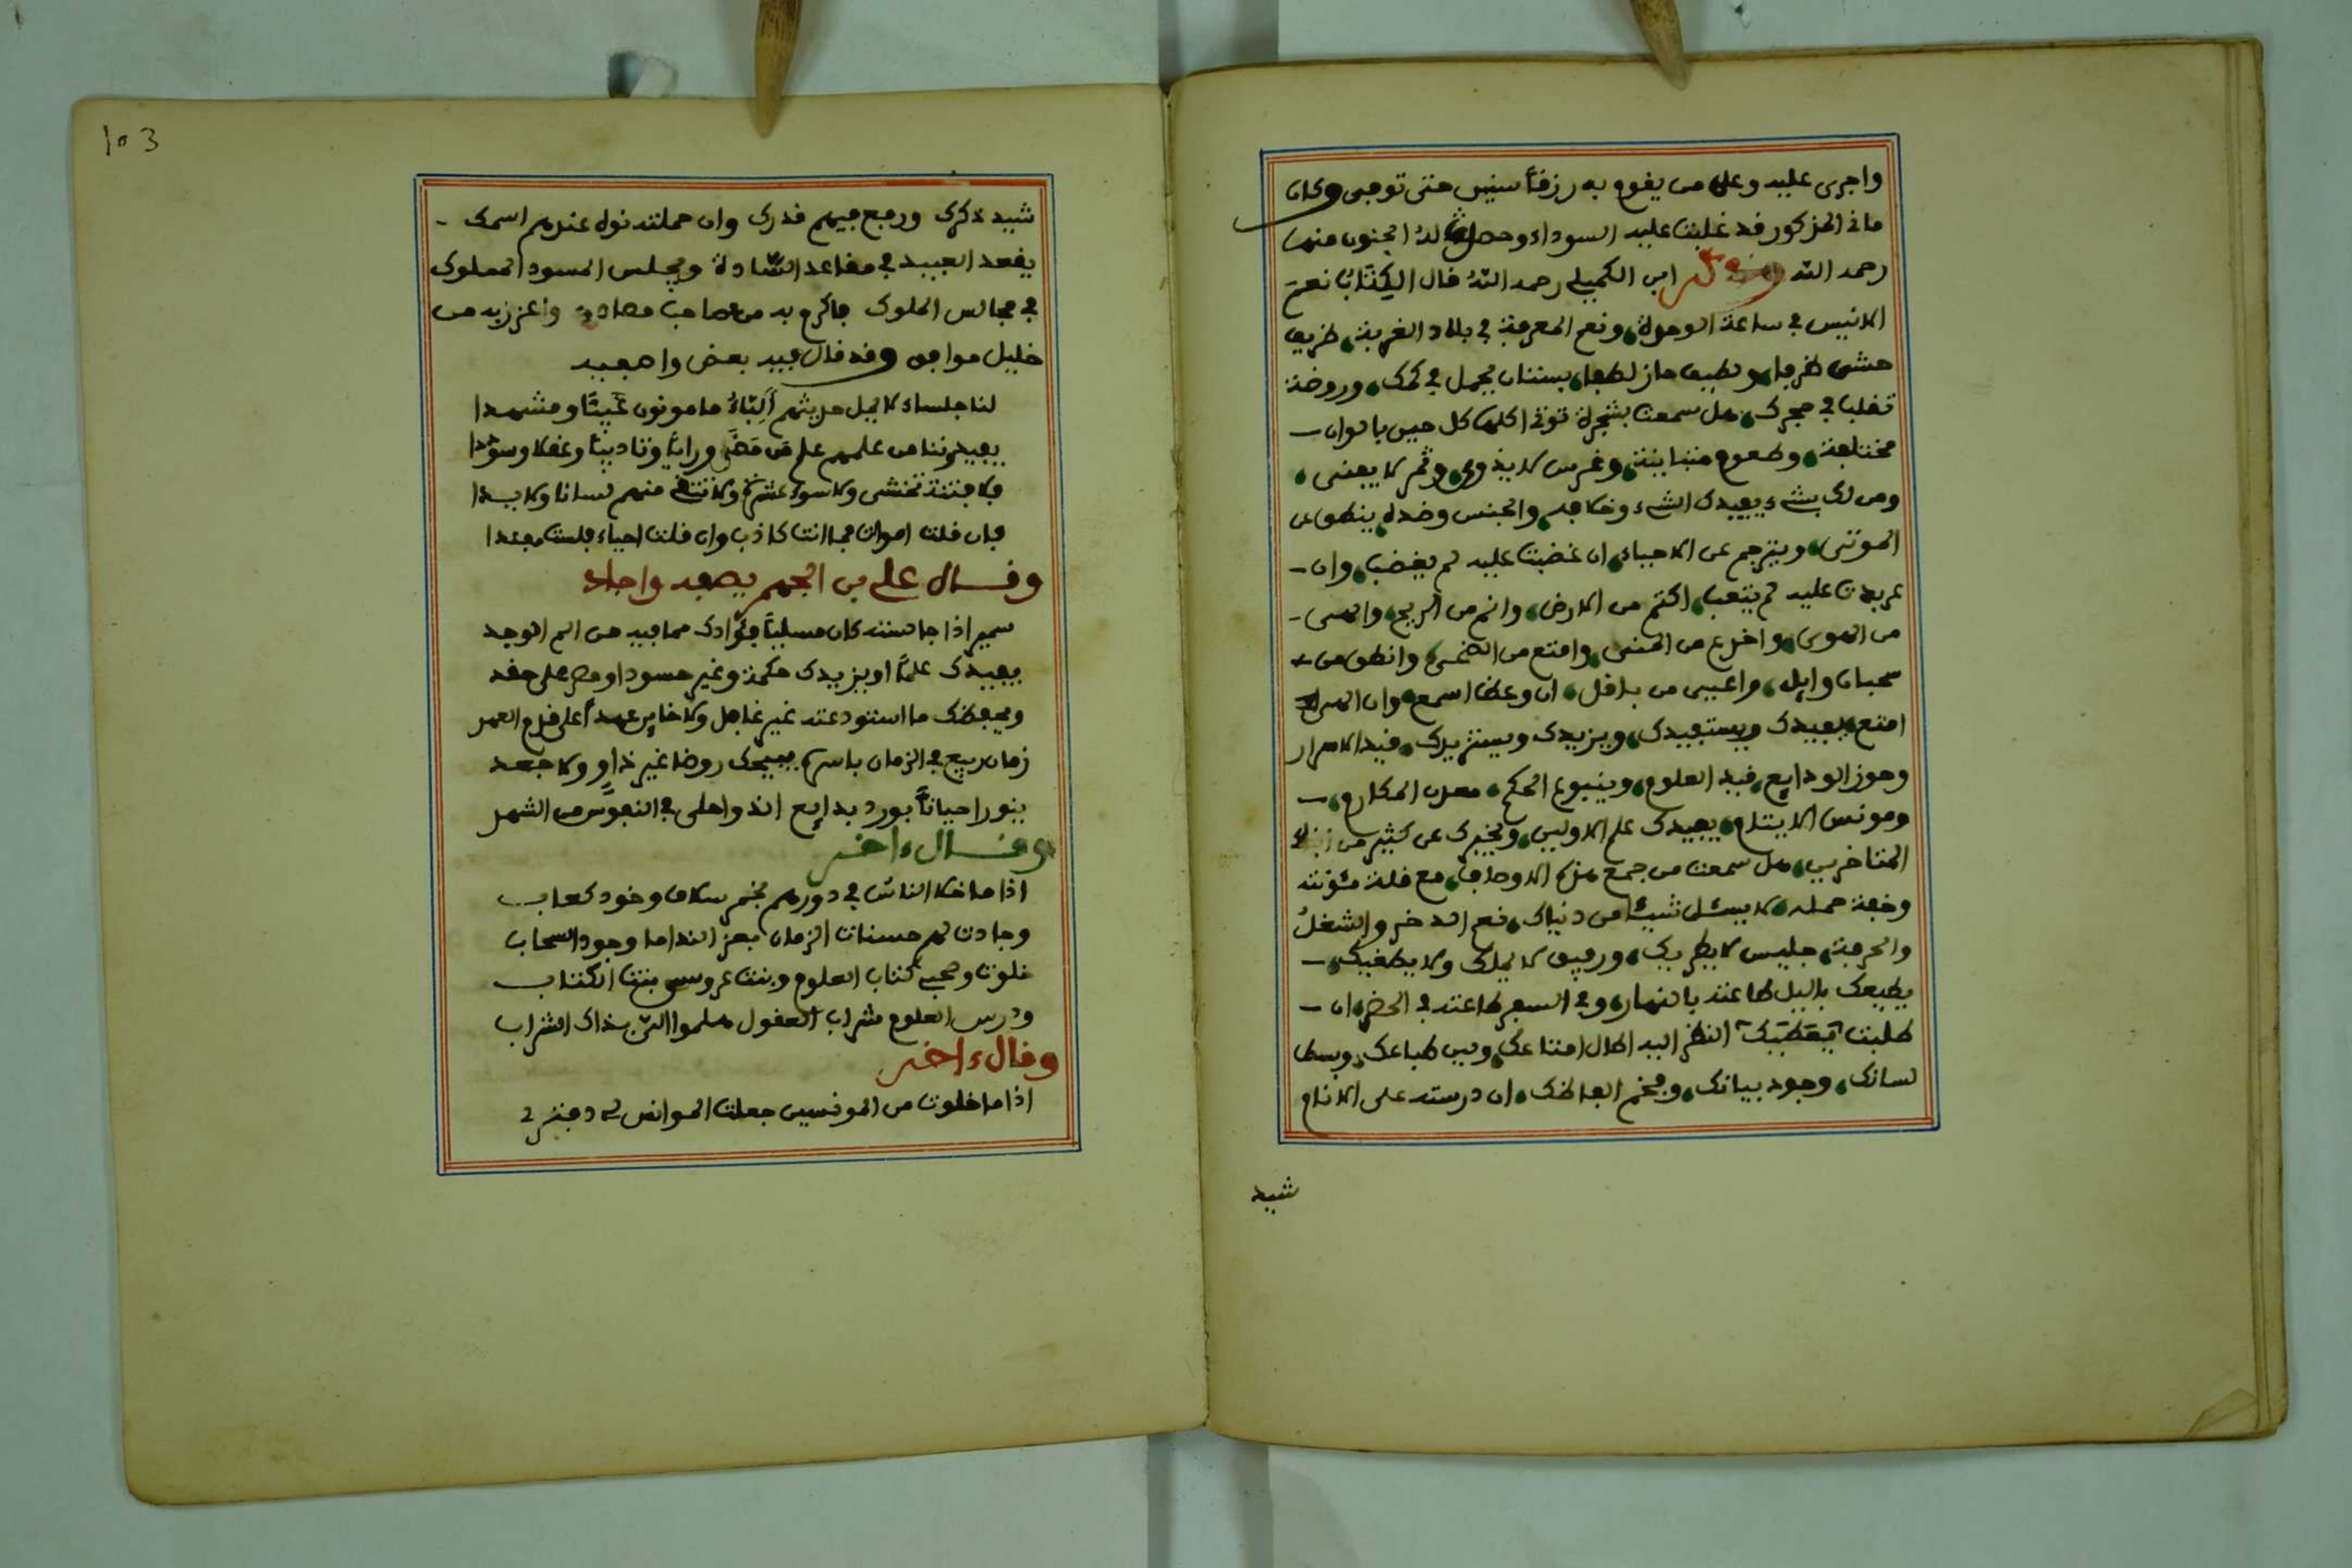 واجرى عليه وعلى من يقوم به رزقا سنين حتى توفي وكان
ماني المذكور قد غلبت عليه السوداء وحصل له الجنون منها
رحمه الله ابن الكميلي رحمه الله قال الكِتَابُ نعم
الانيس في ساعة الوحدة، ونعم المعرفة في بلاد الغربة، ظريف
حشي ظرفا، ولطيف حاز لطفا، بستان يحمل في كمك، وروضة
تقلب في حجرك، هل سمعت بشجرة توتي اكلها كل حين بالوان
مختلفة، وطعوم متباينة، وغرس لا يذوي، وثمر لا يفنى،
ومن لك بشيء يفيدك الشيء وخلافه، والجنس وضده، ينطق عن
الموتى، ويترجم عن الاحياء، ان غضبت عليه لم يغضب، وان
عربدت عليه لم يتعب، اكتم من الارض، وانم من الريح، والهى
من الهوى، واخدع من المنى، وامتع من الضحى، وانطق من
سحبان وايل، واعيى من باقل، ان وعظ اسمع، وان
امتع يفيدك ويستفيدك، ويزيدك ويستزيدك، قيد الاسرار
وحوز الودايع، قيد العلوم، وينبوع الحكم، معدن المكارم،
ومونس لا ينام، يفيدك علم الاولين، ويخبرك عن كثير من
المتاخرين، هل سمعت من جمع هذه الاوصاف، مع قلة مئونته
وخفة حمله، لا يسئل شيئا من دنياك، نعم الدخر والشغلُ
والحرفة، جليس لا يطريك، ورفيق لا يملك ولا
يطيعك بالليل طاعته بالنهار، وفي السفر طاعته في الحضر، ان
طلبت النظر اليه اطال امتاعك، وبين طباعك، وبسط
لسانك، وجود بيانك، وفخم الفاظك، ان درسته على الانام
شيد
103
شيد ذكرك ورفع فيهم قدرك وان حملته نوه عندهم اسمك
يقعد العبيد في مقاعد السَّادة ويجلس المسود المملوك
في مجالس الملوك فاكرم به من صاحب مصادق واعزز به من
خليل موافق وقد قال فيه بعض واصفيه
لنا جلساء لا يمل حديثهم اَلِبَّاءُ مامونون غَيْبًا ومشهدا
يفيدوننا من علمهم علم مَن مَضَى ورايا وتاديبا وعقلا وسوددا
فلا فتنة تخشى ولا سوء عشرة ولا تتقي منهم لسانا ولا يدا
فان قلت اموات فما انت كاذب وان قلت احياء فلست مفندا
وقال علي بن الجهم يصفه واجاد
سمير اذا جالسته كان مسليًا فؤادك مما فيه من الم الوجد
يفيدك علمًا او يزيدك حكمة وغير حسود او مصر على حقد
ويحفظ ما استودعته غير غافل ولا خاين عهدًا على قدم العهد
زمان ربيع في الزمان باسره يبيحك روضا غير ذاوٍ ولا جعد
ينور احيانًا بورد بدايع الذ واحلى في النفوس من الشهد
وقال ءاخر
اذا ما خلا الناس في دورهم بخمر سلاف وخود كعاب
وجادت لهم حسنات الزمان بعز الندا ما وجود السحاب
خلوت وصحبي كتاب العلوم وبنت عروسي بنت الكتاب
ودرس العلوم شراب العقول هلموا الي بذاك الشراب
وقال ءاخر
اذا ما خلوت من المونسين جعلت الموانس لي دفتري